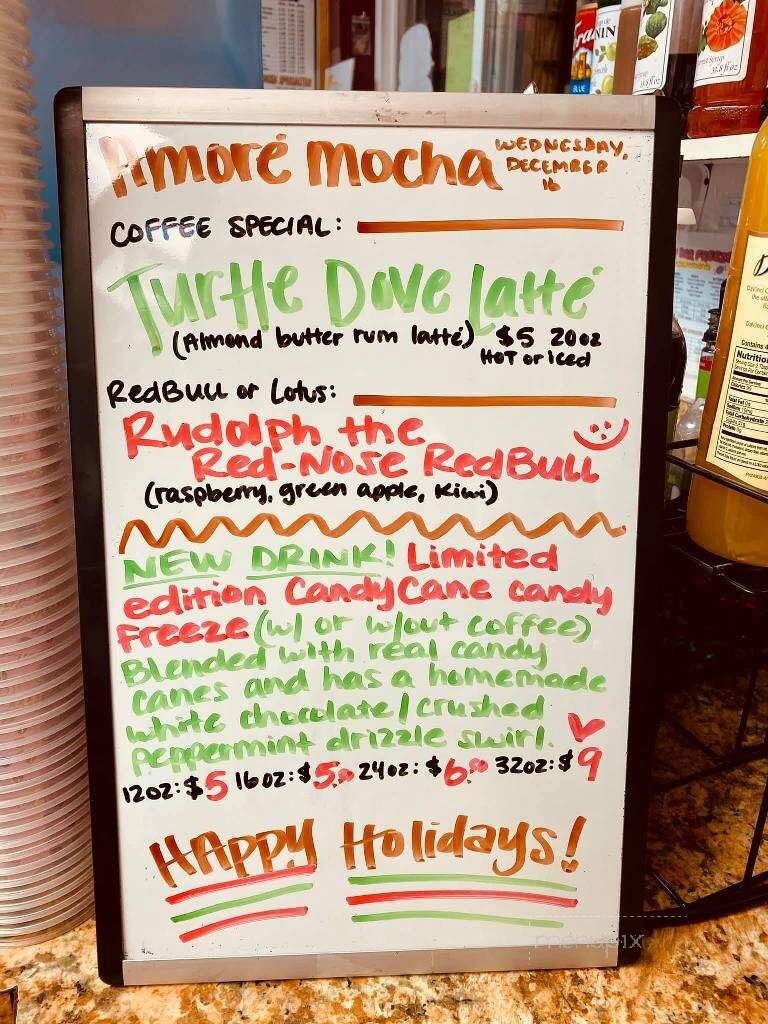 Amoré Mocha
WEDNESDAY,
DECEMBER
16
COFFEE SPECIAL:
Turtle Dove Latté
(Almond butter rum latté) $5 20oz
HOT or iced
RedBull or Lotus:
Rudolph the
Red-Nose RedBull
(raspberry, green apple, kiwi)
NEW DRINK! Limited
edition CandyCane candy
Freeze (w/ or w/out coffee)
Blended with real candy
canes and has a homemade
white chocolate/crushed
peppermint drizzle swirl.
12oz: $5 16oz: $5.50 24oz: $6.50 32oz: $9
HAPPY Holidays!
BLUE
33.8 fl oz
Nutrition